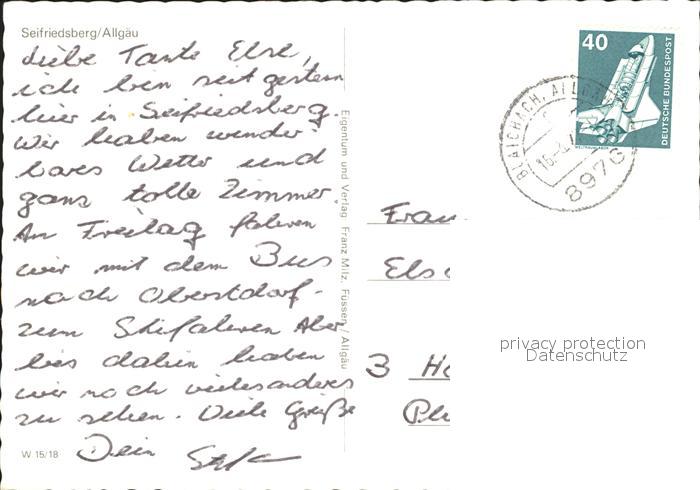 Seifriedsberg/Allgäu
Liebe Tante Else,
ich bin seit gestern
hier in Seifriedsberg.
Wir haben wunder-
bares Wetter und
ganz tolle Zimmer.
Am Freitag fahren
wir mit dem Bus
nach Oberstdorf
zum Skifahren Aber
bis dahin haben
wir noch vieles anderes
zu sehen. Viele Grüße
Dein
W 15/18
Eigentum und Verlag Franz Milz, Füssen/Allgäu
40
DEUTSCHE BUNDESPOST
WELTRAUMLABOR
BLAICHACH, ALLG
8976
Frau
Els
privacy protection
Datenschutz
3 H